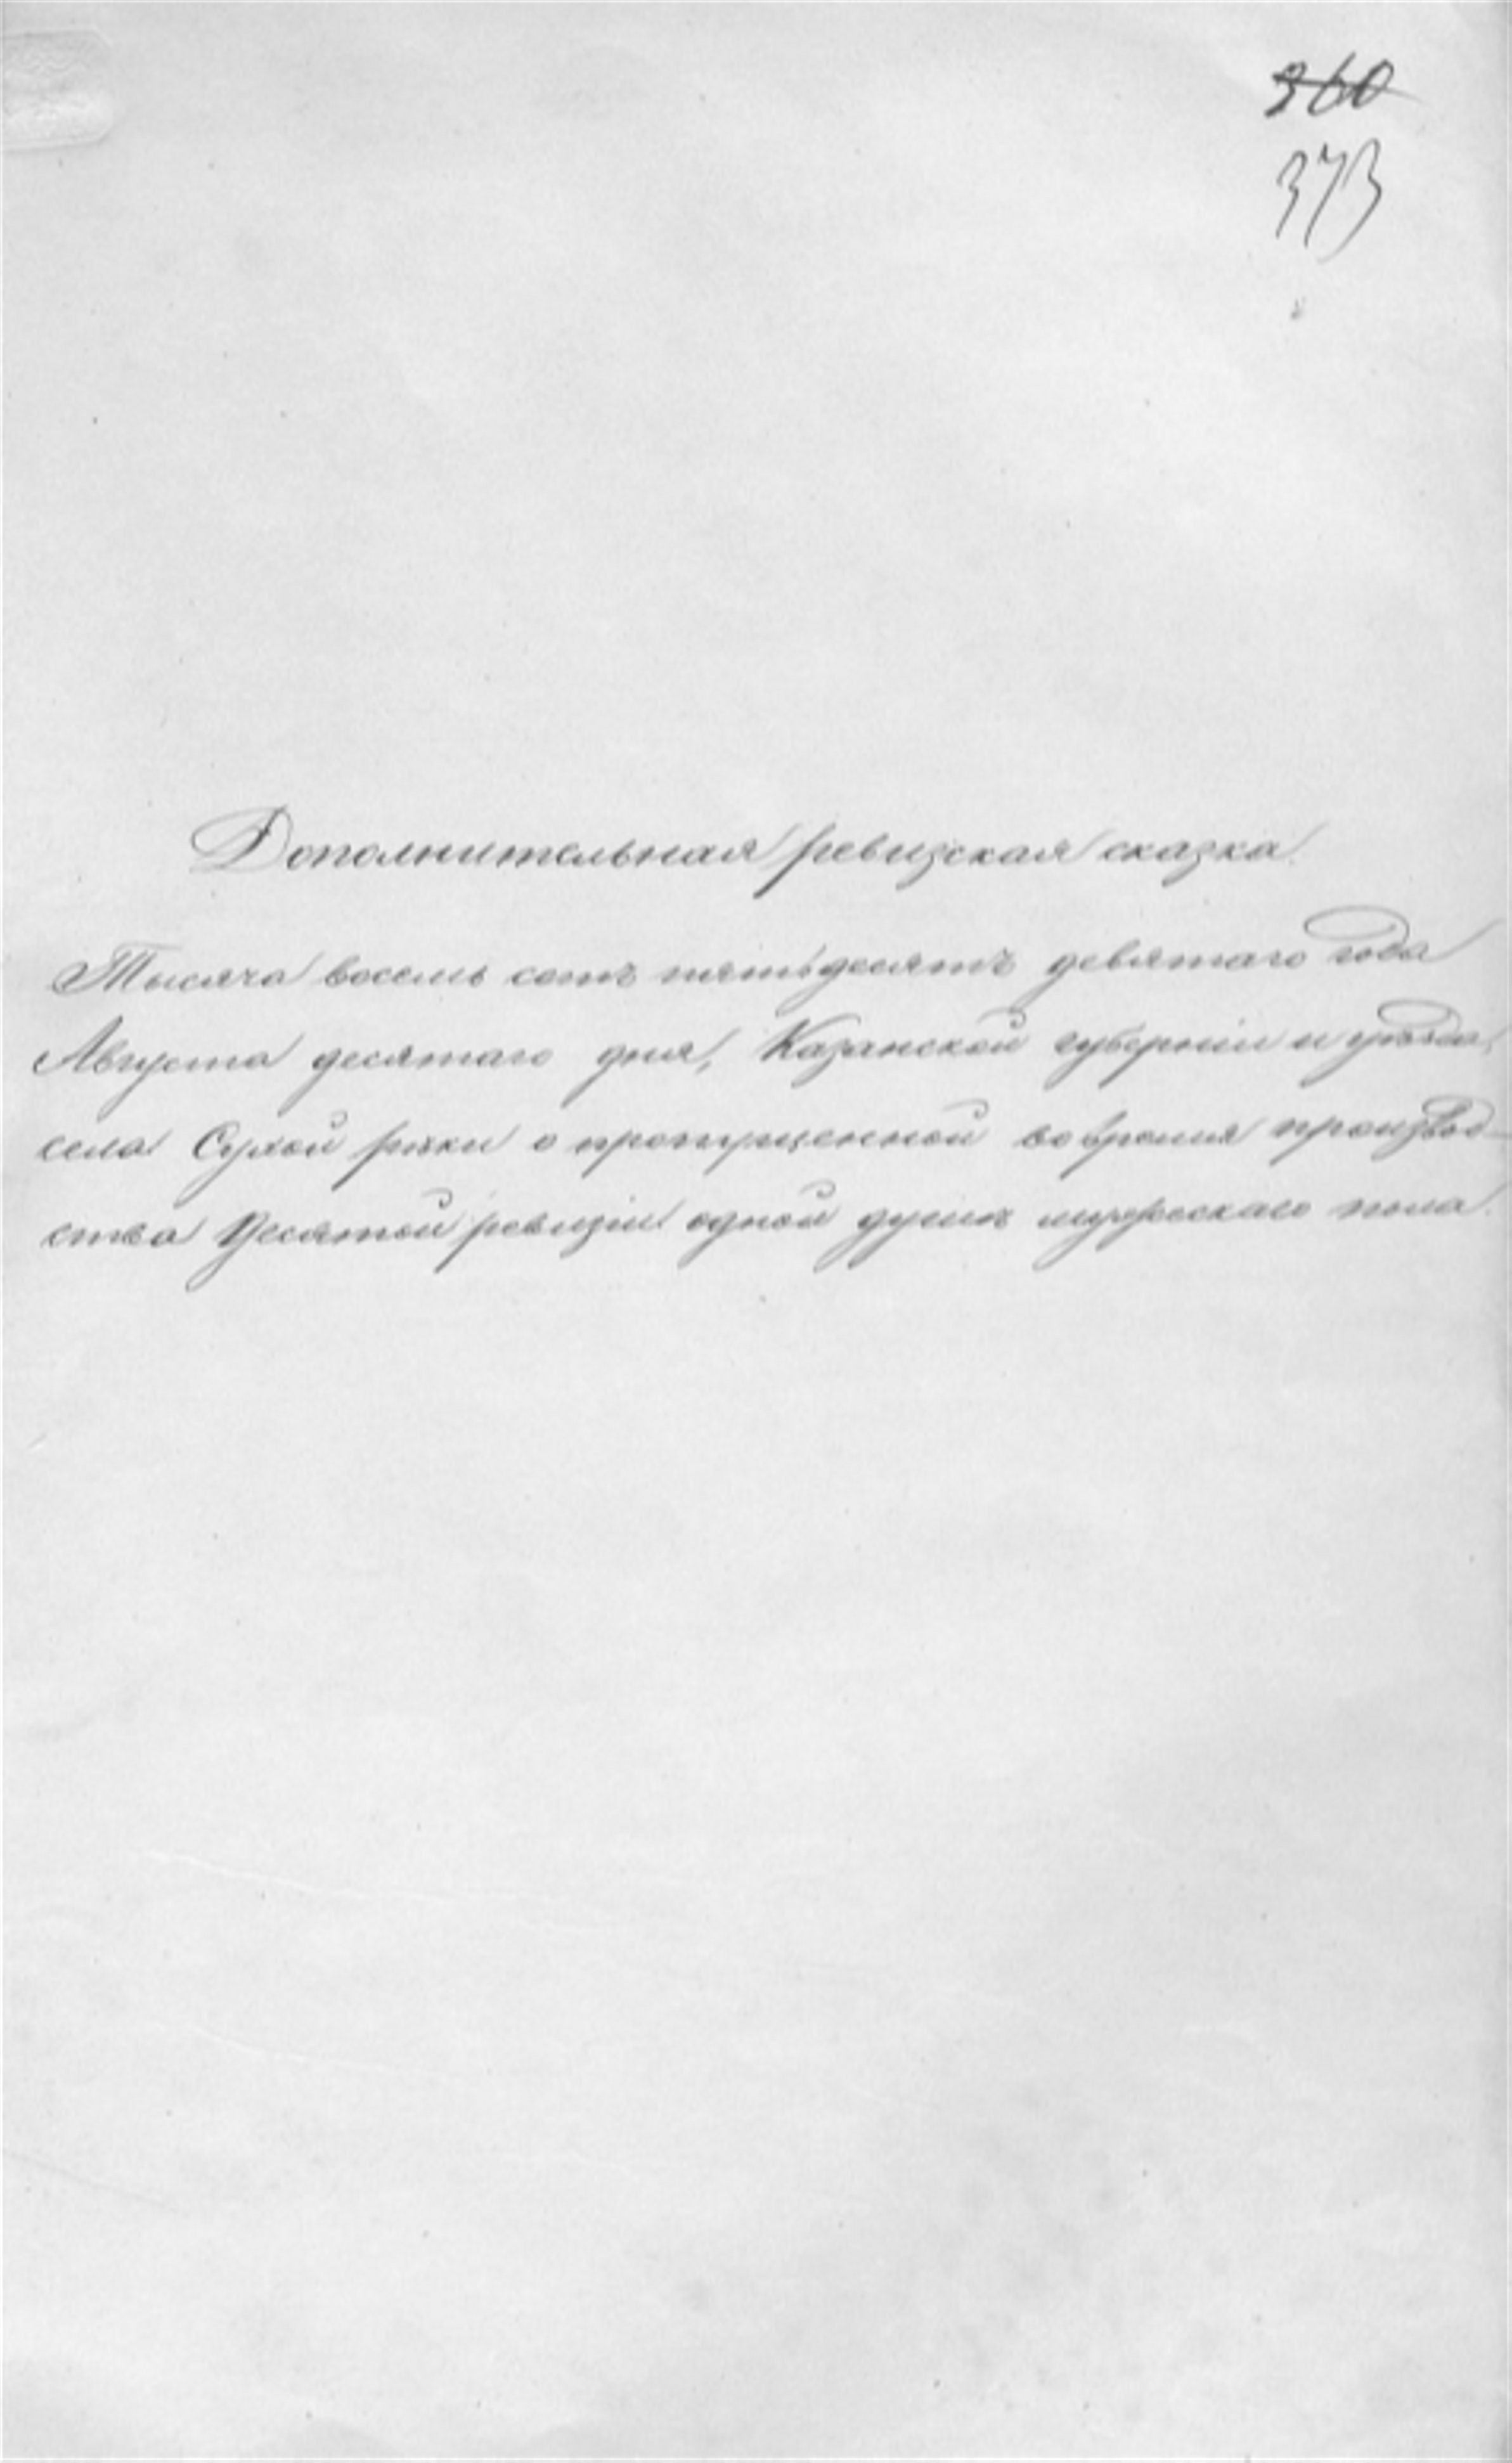 360
373
Дополнительная ревизская сказка
Тысяча восемь сотъ пятьдесятъ девятаго года
Августа десятаго дня, Казанской губерніи и уѣзда,
села Сухой рѣки о пропущенной во время производ-
ства Десятой ревизіи одной души мужескаго пола.